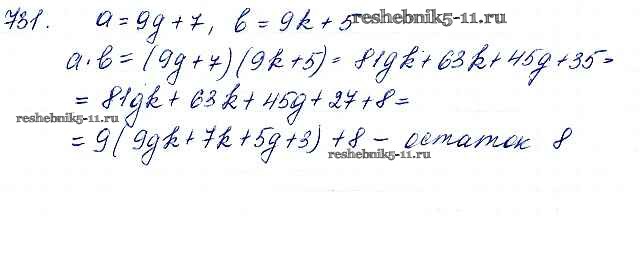 731. a = 9g + 7, b = 9k + 5
reshebnik5-11.ru
a·b = (9g+7)(9k+5) = 81gk + 63k + 45g + 35 =
= 81gk + 63k + 45g + 27 + 8 =
reshebnik5-11.ru
= 9(9gk + 7k + 5g + 3) + 8 – остаток 8
reshebnik5-11.ru